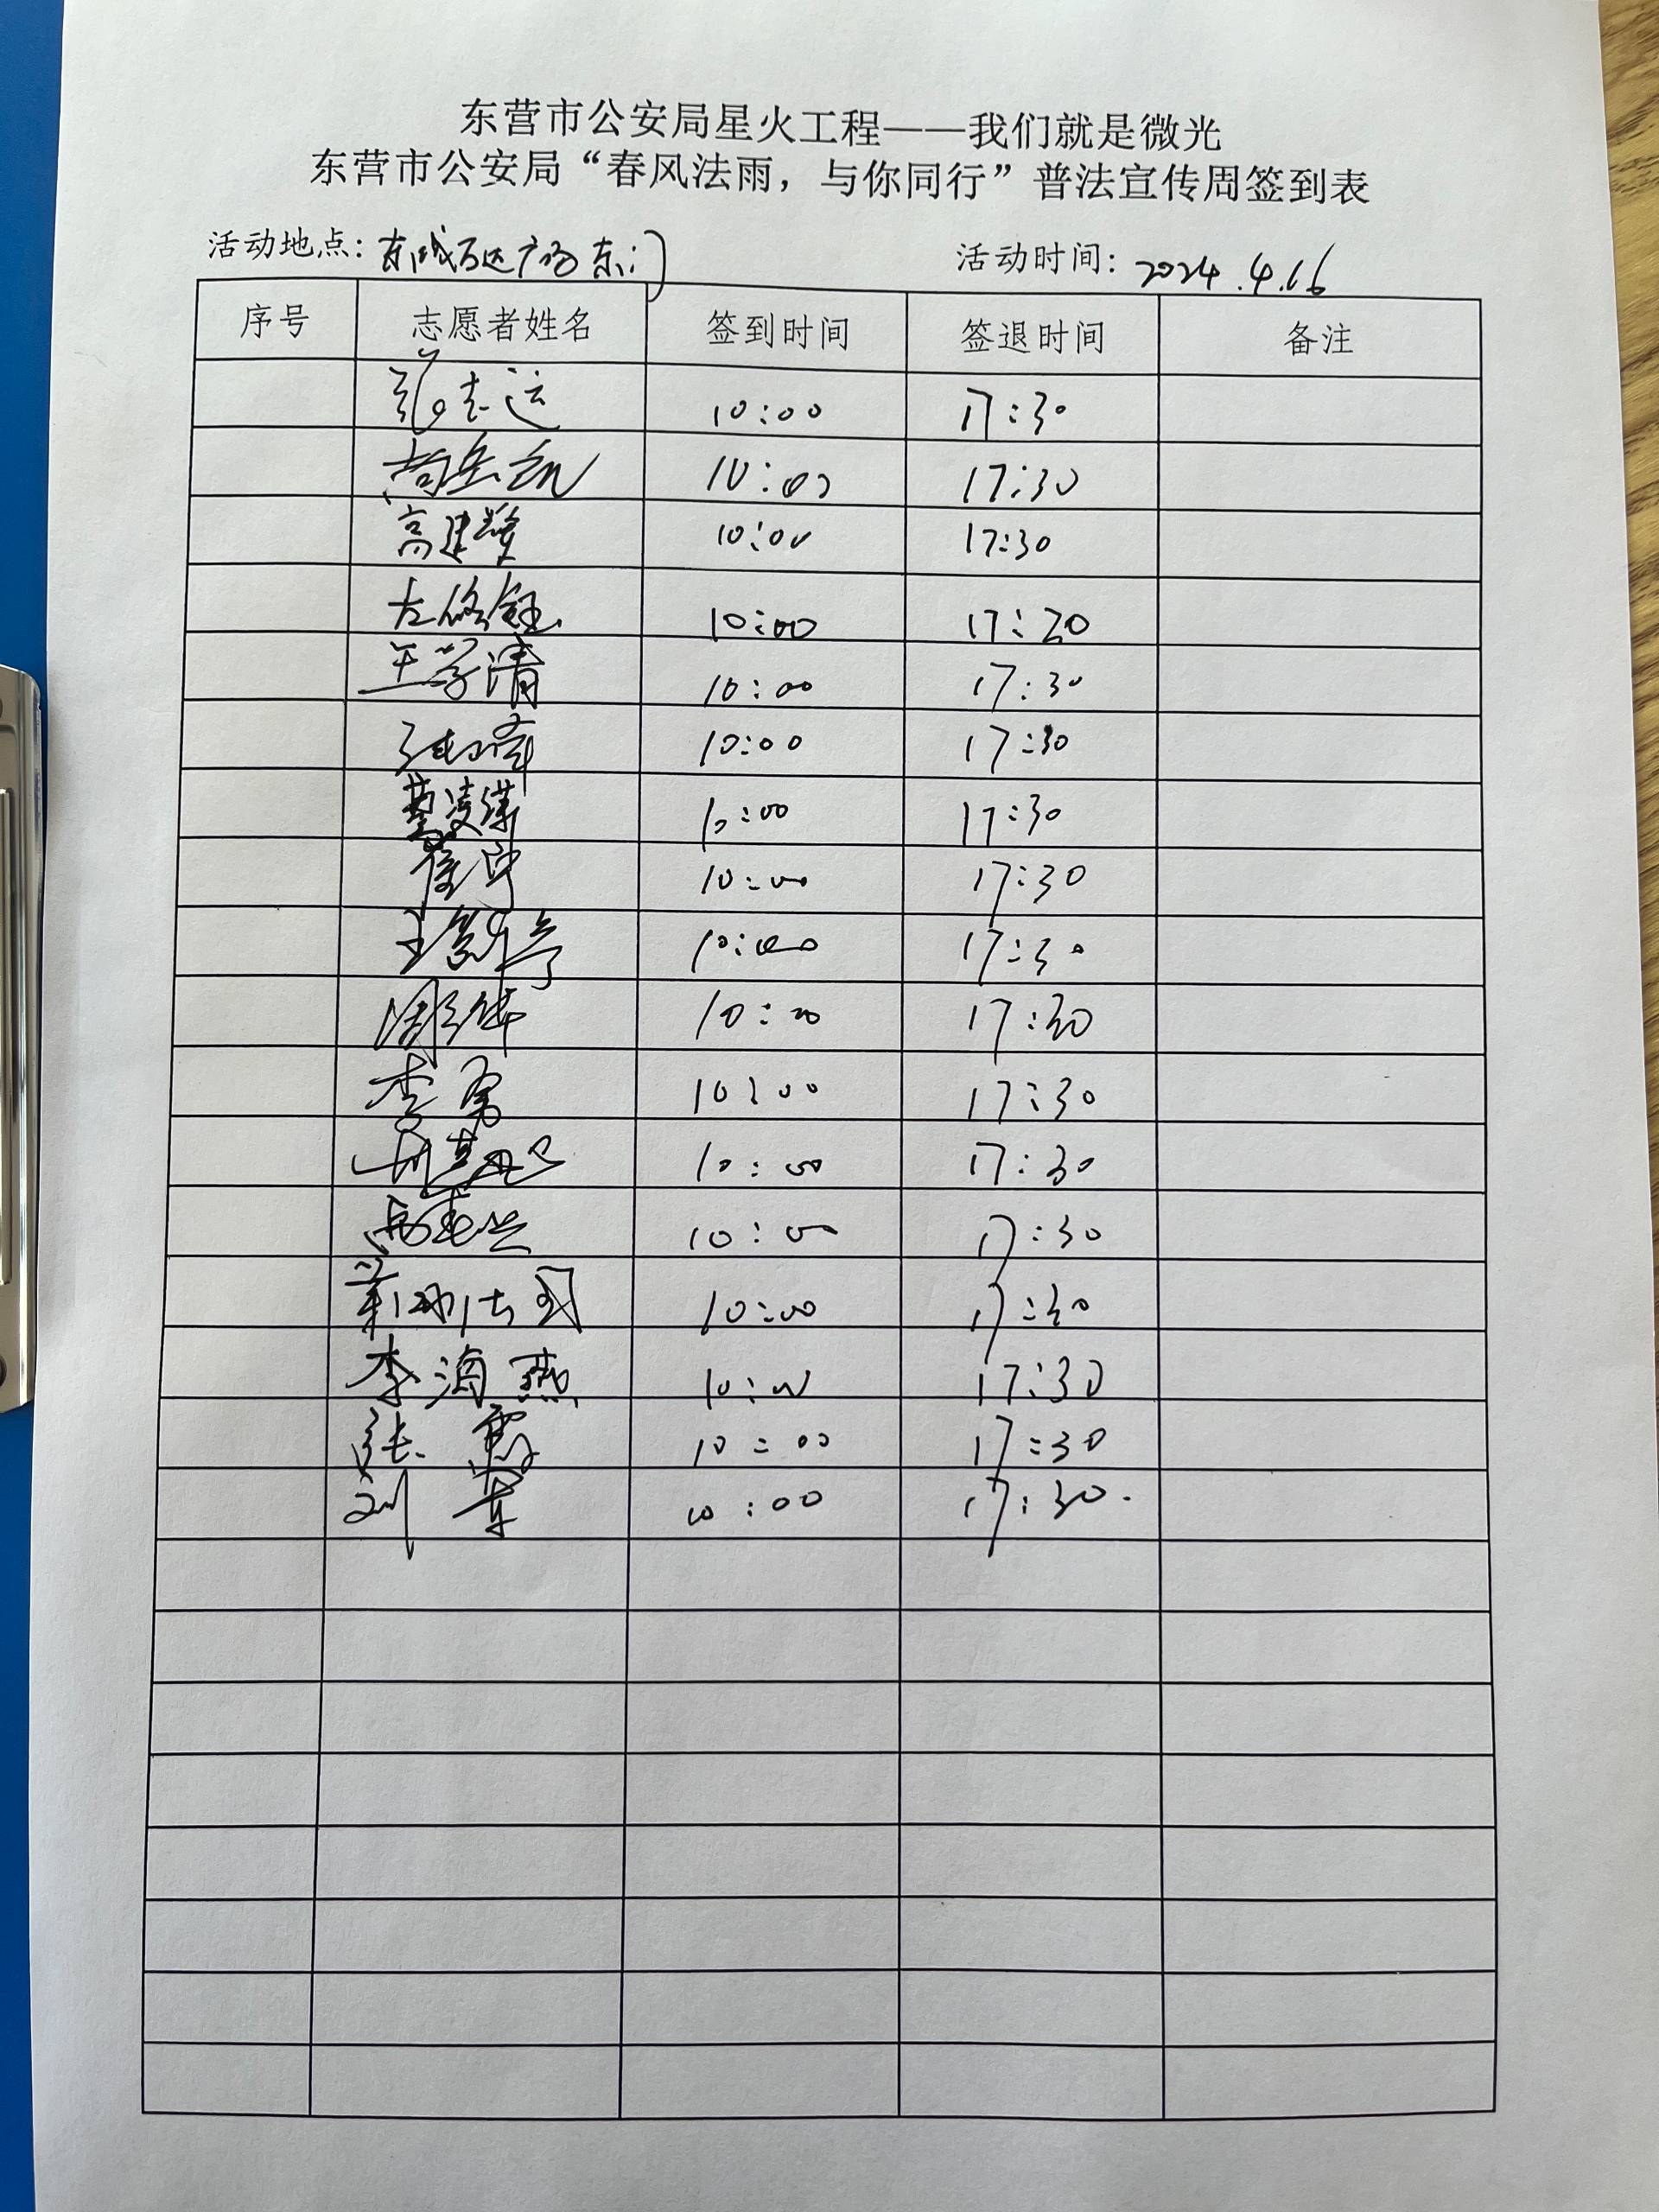 东营市公安局星火工程——我们就是微光
东营市公安局“春风法雨，与你同行”普法宣传周签到表
活动地点：东城万达广场东门 活动时间：2024.4.16
序号 志愿者姓名 签到时间 签退时间 备注
张志运 10:00 17:30
尚岳凯 10:00 17:30
高建 10:00 17:30
左修钰 10:00 17:20
王学清 10:00 17:30
10:00 17:30
葛凌 10:00 17:30
10:00 17:30
王 10:00 17:30
10:00 17:30
李勇 10:00 17:30
10:00 17:30
10:00 17:30
10:00 17:30
李海燕 10:00 17:30
张霞 10:00 17:30
刘 10:00 17:30.